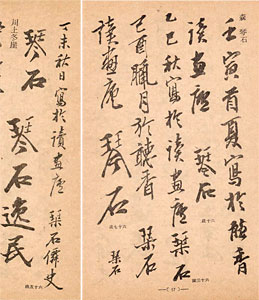 森 琴石
壬寅首夏寫於聽香
讀畫廬 琴石
六十歳
乙巳秋寫於讀畫廬 琴石
六十三歳
己酉臘月於聽香 琴石
讀畫庵 琴石
六十七歳
(17)
丁未秋日寫於讀畫廬 琴石僊史
六十五歳
琴石 琴石逸民
川上冬崖